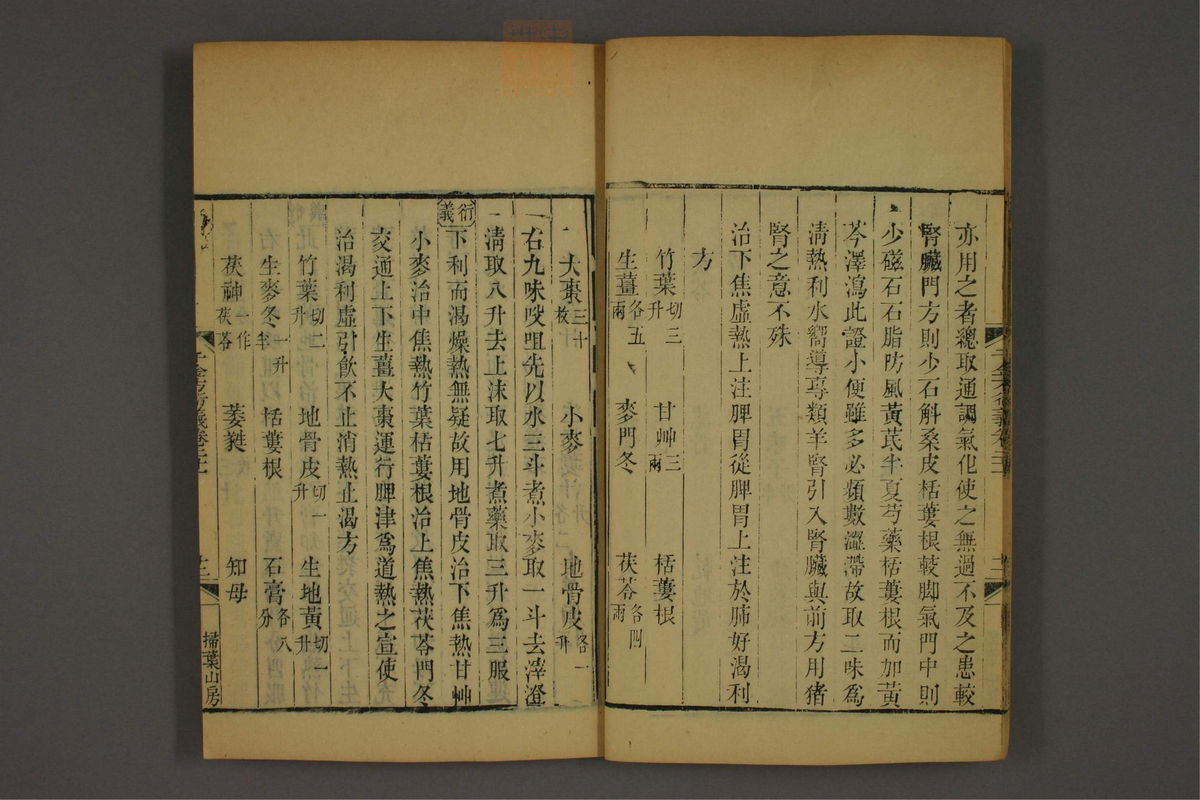 亦用之者總取通調氣化使之無過不及之患較
腎臟門方則少石斛桑皮栝蔞根較脚氣門中則
少磁石石脂防風黃芪半夏芍藥栝蔞根而加黃
芩澤瀉此證小便雖多必頻數澀滯故取二味爲
清熱利水嚮導專類羊腎引入腎臟與前方用猪
腎之意不殊
治下焦虛熱上注脾胃從脾胃上注於肺好渴利
方
竹葉切三升 甘艸三兩 栝蔞根
生薑各五兩 麥門冬 茯苓各四兩
大棗三十枚 小麥 地骨皮各一升
右九味㕮咀先以水三斗煮小麥取一斗去滓澄
清取八升去上沫取七升煮藥取三升爲三服
衍義
下利而渴燥熱無疑故用地骨皮治下焦熱甘艸
小麥治中焦熱竹葉栝蔞根治上焦熱茯苓門冬
交通上下生薑大棗運行脾津爲道熱之宣使
治渴利虛引飲不止消熱止渴方
竹葉切二升 地骨皮切一升 生地黃切一升
生麥冬一升半 栝蔞根 石膏各八分
茯神一作茯苓 萎蕤 知母
千金方衍義卷二十一
掃葉山房